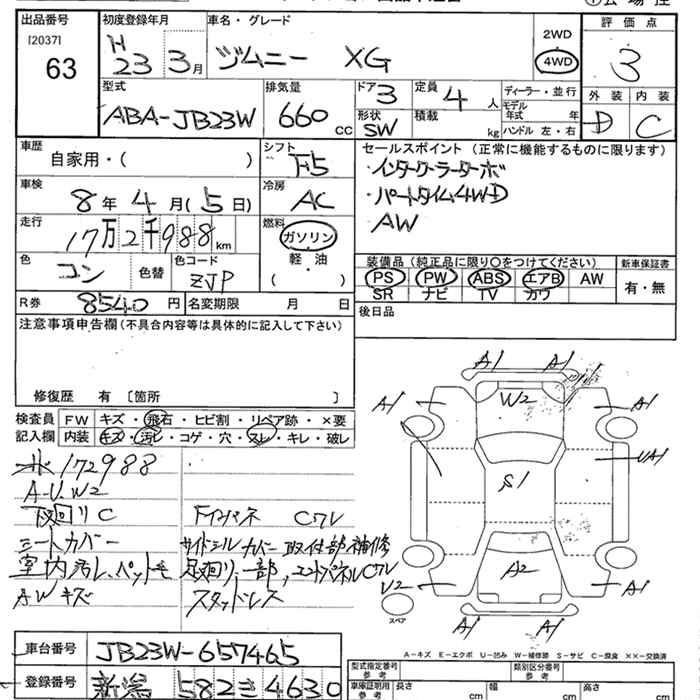 出品番号 初度登録年月 車名・グレード 評価点
[2037] 63 H 23 3月 ジムニー XG 2WD 4WD 3
型式 排気量 ドア 3 定員 4人 ディーラー・並行 外装 内装
ABA-JB23W 660 cc 形状 SW 積載 kg モデル年式 年 ハンドル 左・右 D C
車歴 自家用・( ) シフト F5 セールスポイント (正常に機能するものに限ります)
・インタークーラーターボ
車検 8年 4月( 5日) 冷房 AC ・パートタイム4WD
AW
走行 17万2千988km 燃料 ガソリン 軽油 ( ・ )
色 コン 色替 色コード ZJP 装備品 (純正品に限り○をつけてください) 新車保証書
PS PW ABS エアB AW 有・無
SR ナビ TV カワ
R券 8540円 名変期限 月 日 後日品
注意事項申告欄(不具合内容等は具体的に記入して下さい)
修復歴 有 〔箇所 〕
検査員 FW キズ・飛石・ヒビ割・リペア跡・×要
記入欄 内装 キズ・汚レ・コゲ・穴・スレ・キレ・破レ
172988
A-U.W2
下回りC 下インパネ Cクレ
シートカバー サイドシルカバー取付部補修
室内汚レ、ペット毛 足廻り、一部、エンドパネルCクレ
AWキズ スタッドレス
A1 A1
A1 W2 A1
S1 UA1
A2
U2 A1
スペア A1 A1
A-キズ E-エクボ U-凹み W-補修跡 S-サビ C-腐食 ××-交換済
車台番号 JB23W-657465
登録番号 新潟 582 き 4630
型式指定番号 参考 類別区分番号 参考
車庫証明用 参考 長さ cm 幅 cm 高さ cm